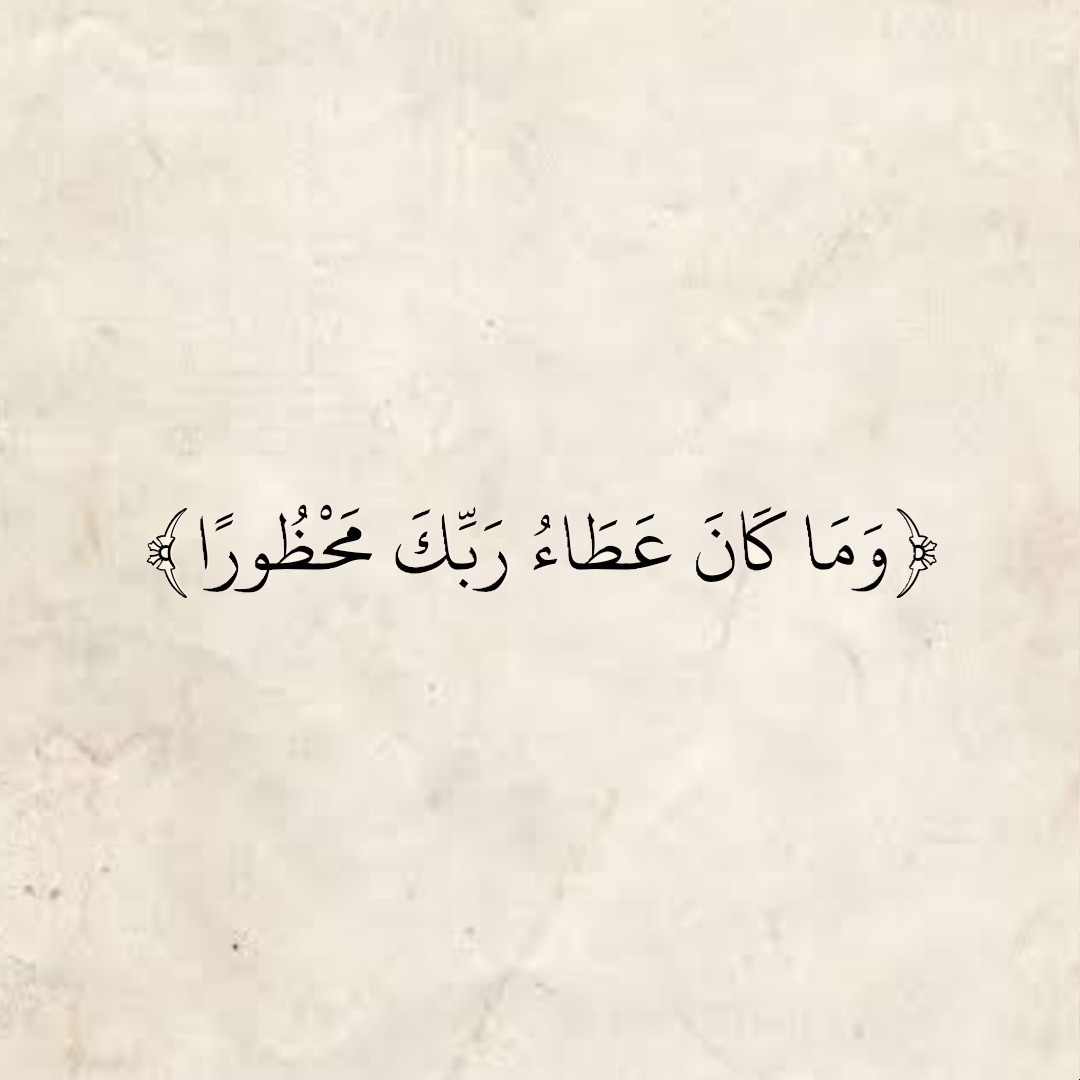 ﴿وَمَا كَانَ عَطَاءُ رَبِّكَ مَحْظُورًا﴾